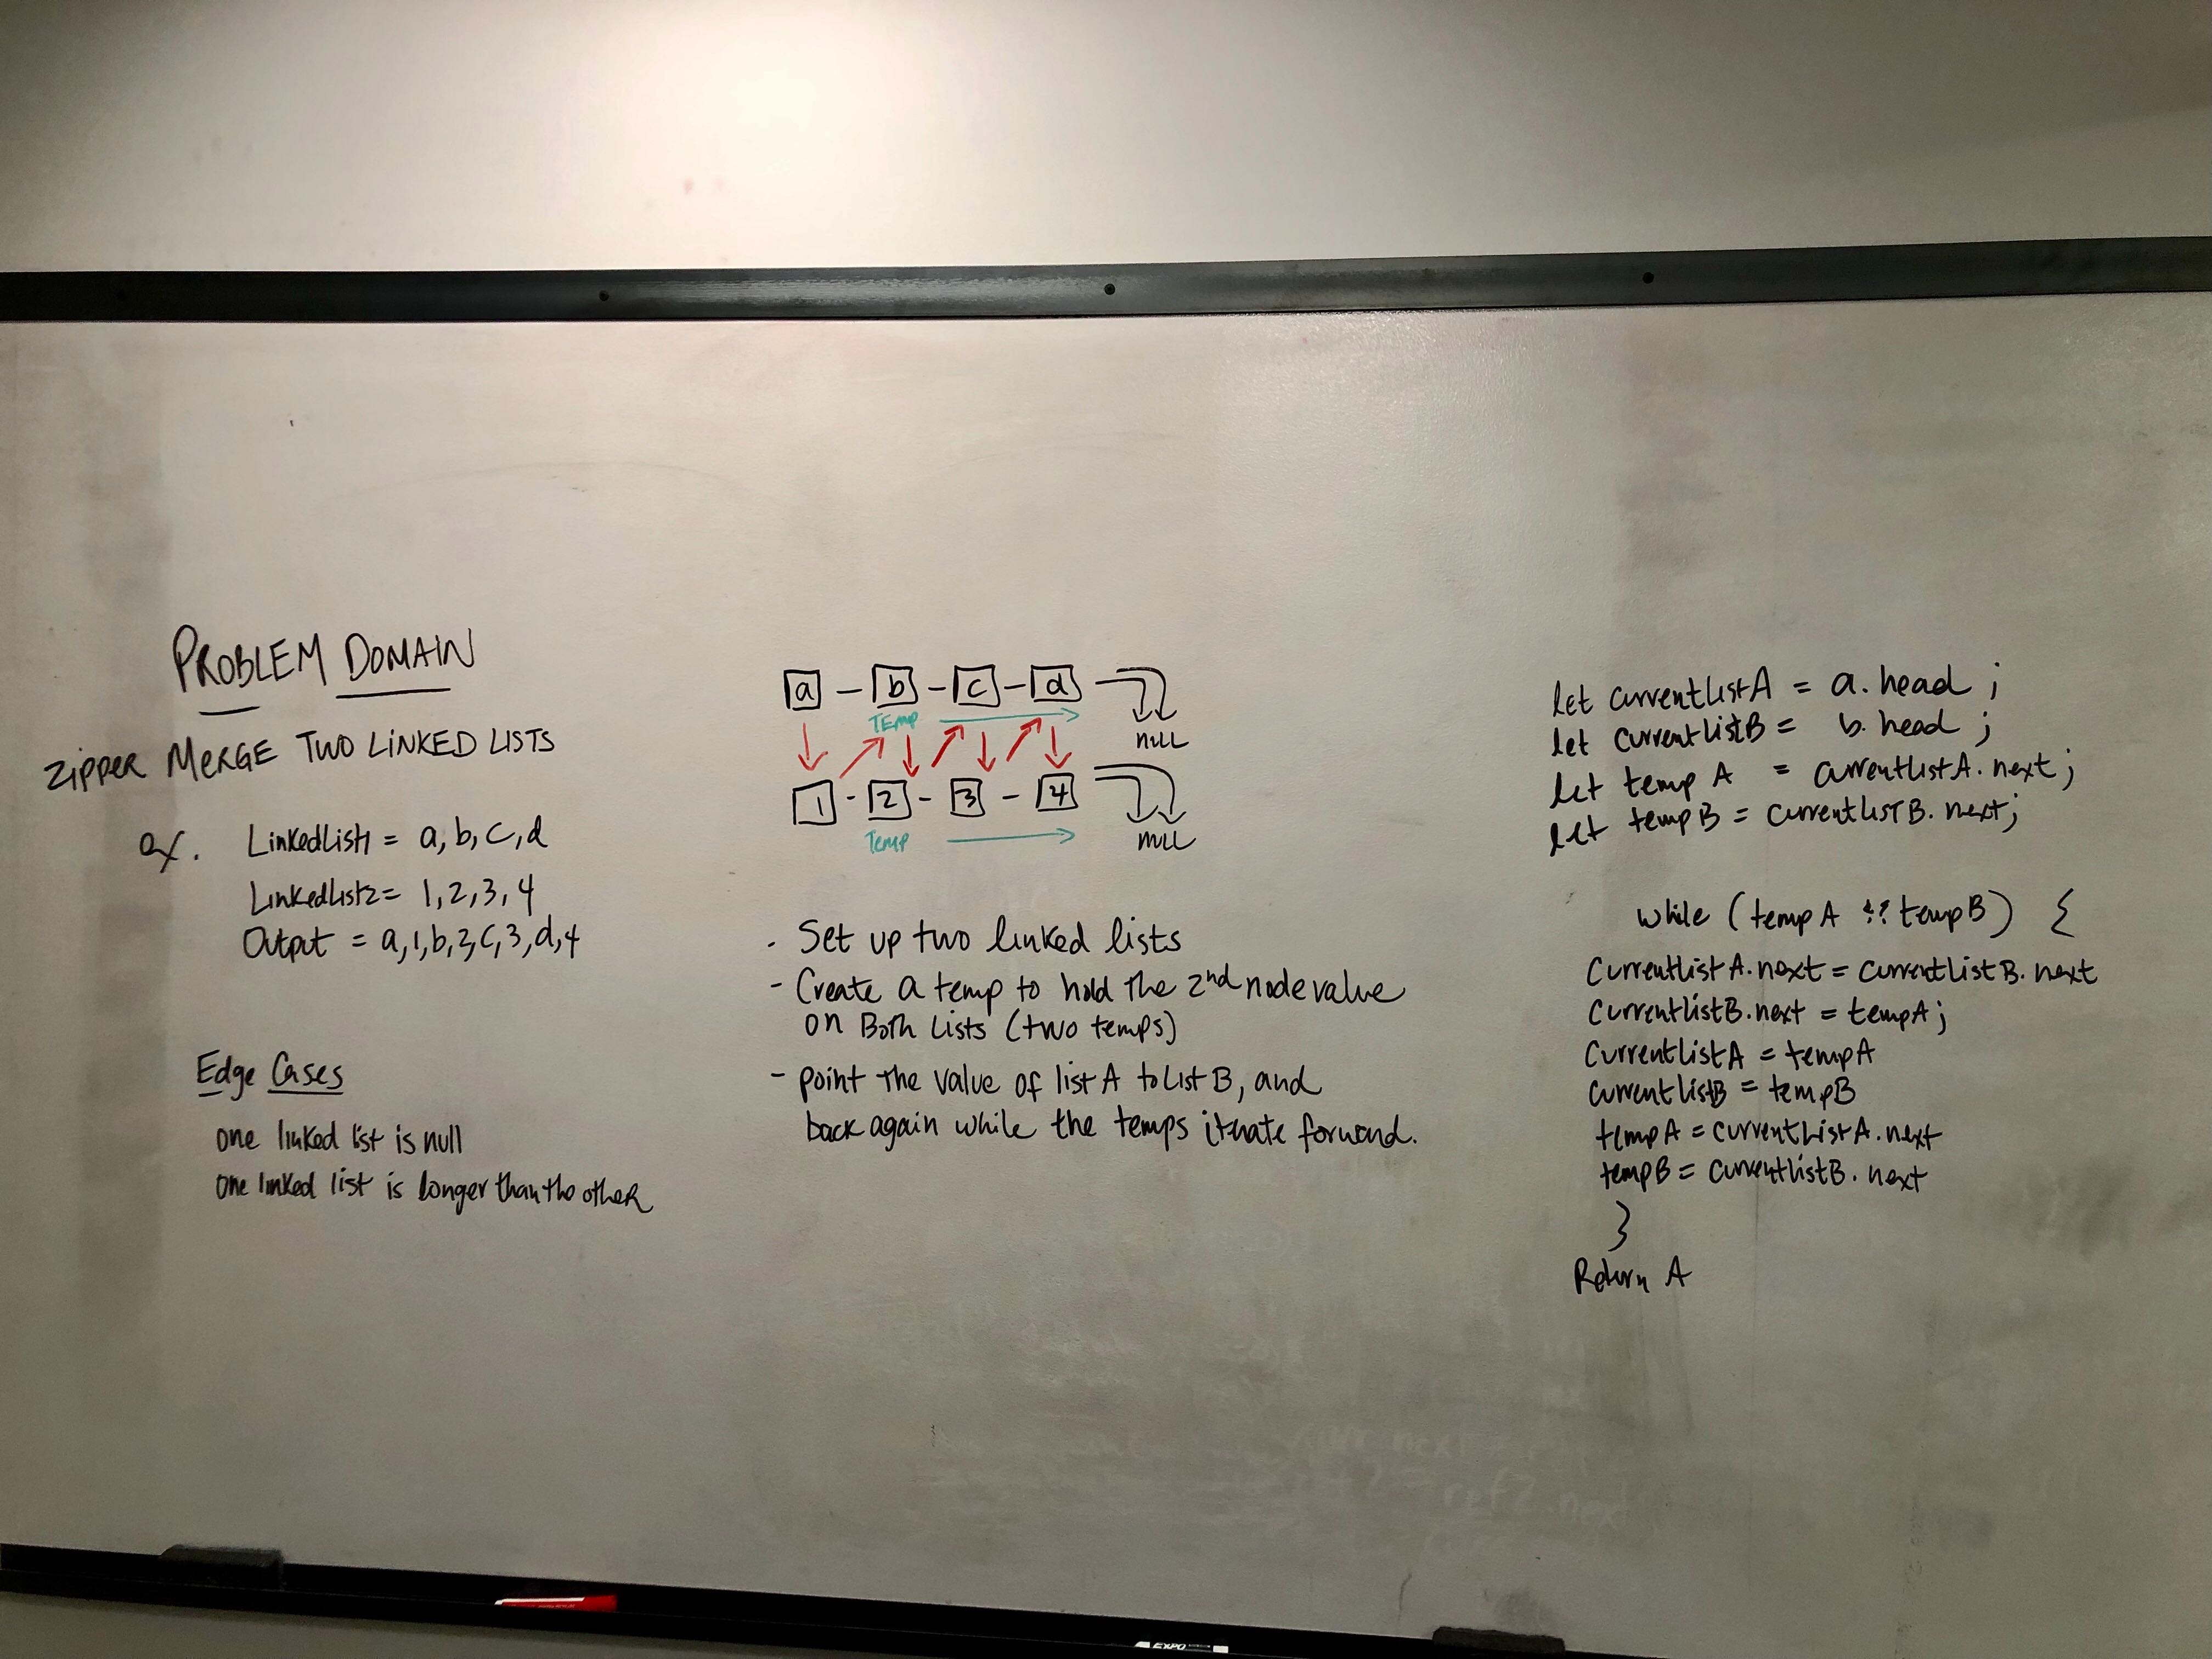 PROBLEM DOMAIN
ZIPPER MERGE TWO LINKED LISTS
ex. LinkedList1 = a, b, c, d
LinkedList2 = 1, 2, 3, 4
Output = a, 1, b, 2, c, 3, d, 4
Edge Cases
one linked list is null
one linked list is longer than the other
a - b - c - d
TEMP
null
1 - 2 - 3 - 4
null
Temp
. Set up two linked lists
- Create a temp to hold the 2nd node value
on Both Lists (two temps)
- point the value of list A to List B, and
back again while the temps iterate forward.
let currentlistA = a.head ;
let currentlistB = b.head ;
let temp A = currentlistA.next ;
let temp B = currentlistB.next;
while (tempA && tempB) {
CurrentlistA.next = currentlistB.next
CurrentlistB.next = tempA;
CurrentlistA = tempA
currentlistB = tempB
tempA = currentlistA.next
tempB = currentlistB.next
}
Return A
EXPO